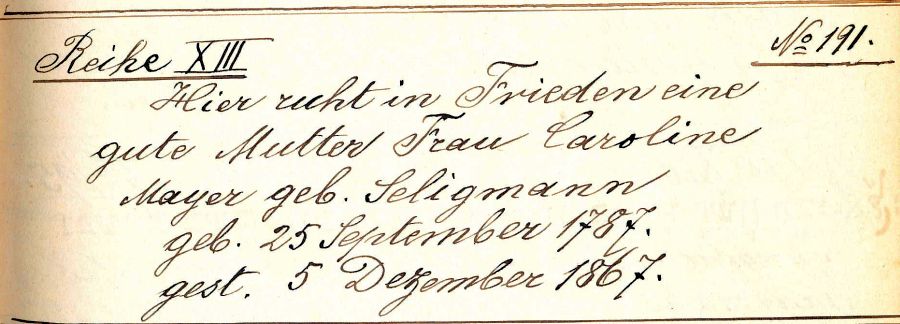 Reihe XIII No 191.
Hier ruht in Frieden eine
gute Mutter Frau Caroline
Mayer geb. Seligmann
geb. 25 September 1787.
gest. 5 Dezember 1867.